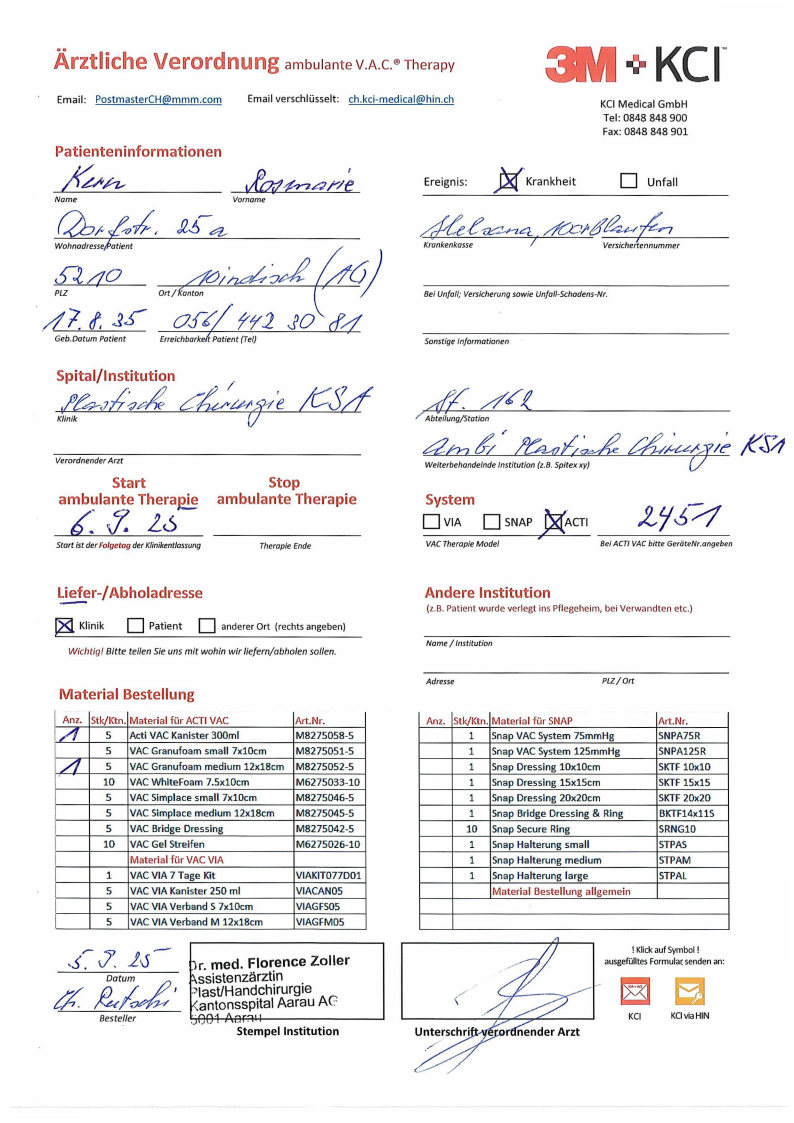 Ärztliche Verordnung ambulante V.A.C.® Therapy
3M+KCI™
Email: PostmasterCH@mmm.com Email verschlüsselt: ch.kci-medical@hin.ch
KCI Medical GmbH
Tel: 0848 848 900
Fax: 0848 848 901
Patienteninformationen
Kern Rosmarie
Name Vorname
Ereignis: Krankheit Unfall
Dorfstr. 25a
Wohnadresse/Patient
Helsana,
Krankenkasse Versichertennummer
5210 Windisch (AG)
PLZ Ort / Kanton
Bei Unfall; Versicherung sowie Unfall-Schadens-Nr.
17.8.35 056/ 442 30 81
Geb.Datum Patient Erreichbarkeit Patient (Tel)
Sonstige Informationen
Spital/Institution
Plastische Chirurgie KSA
Klinik
St. 162
Abteilung/Station
Verordnender Arzt
Ambi Plastische Chirurgie KSA
Weiterbehandelnde Institution (z.B. Spitex xy)
Start Stop
ambulante Therapie ambulante Therapie
6. 9. 25
Start ist der Folgetag der Klinikentlassung Therapie Ende
System
VIA SNAP ACTI 2451
VAC Therapie Model Bei ACTI VAC bitte GeräteNr.angeben
Liefer-/Abholadresse
Klinik Patient anderer Ort (rechts angeben)
Wichtig! Bitte teilen Sie uns mit wohin wir liefern/abholen sollen.
Andere Institution
(z.B. Patient wurde verlegt ins Pflegeheim, bei Verwandten etc.)
Name / Institution
Adresse PLZ / Ort
Material Bestellung
Anz. Stk/Ktn. Material für ACTI VAC Art.Nr.
1 5 Acti VAC Kanister 300ml M8275058-5
5 VAC Granufoam small 7x10cm M8275051-5
1 5 VAC Granufoam medium 12x18cm M8275052-5
10 VAC WhiteFoam 7.5x10cm M6275033-10
5 VAC Simplace small 7x10cm M8275046-5
5 VAC Simplace medium 12x18cm M8275045-5
5 VAC Bridge Dressing M8275042-5
10 VAC Gel Streifen M6275026-10
Material für VAC VIA
1 VAC VIA 7 Tage Kit VIAKIT077D01
5 VAC VIA Kanister 250 ml VIACAN05
5 VAC VIA Verband S 7x10cm VIAGFS05
5 VAC VIA Verband M 12x18cm VIAGFM05
Anz. Stk/Ktn. Material für SNAP Art.Nr.
1 Snap VAC System 75mmHg SNPA75R
1 Snap VAC System 125mmHg SNPA125R
1 Snap Dressing 10x10cm SKTF 10x10
1 Snap Dressing 15x15cm SKTF 15x15
1 Snap Dressing 20x20cm SKTF 20x20
1 Snap Bridge Dressing & Ring BKTF14x11S
10 Snap Secure Ring SRNG10
1 Snap Halterung small STPAS
1 Snap Halterung medium STPAM
1 Snap Halterung large STPAL
Material Bestellung allgemein
5. 9. 25
Datum
Besteller
Dr. med. Florence Zoller
Assistenzärztin
Plast/Handchirurgie
Kantonsspital Aarau AG
5001 Aarau
Stempel Institution
Unterschrift verordnender Arzt
! Klick auf Symbol !
ausgefülltes Formular senden an:
KCI KCI via HIN